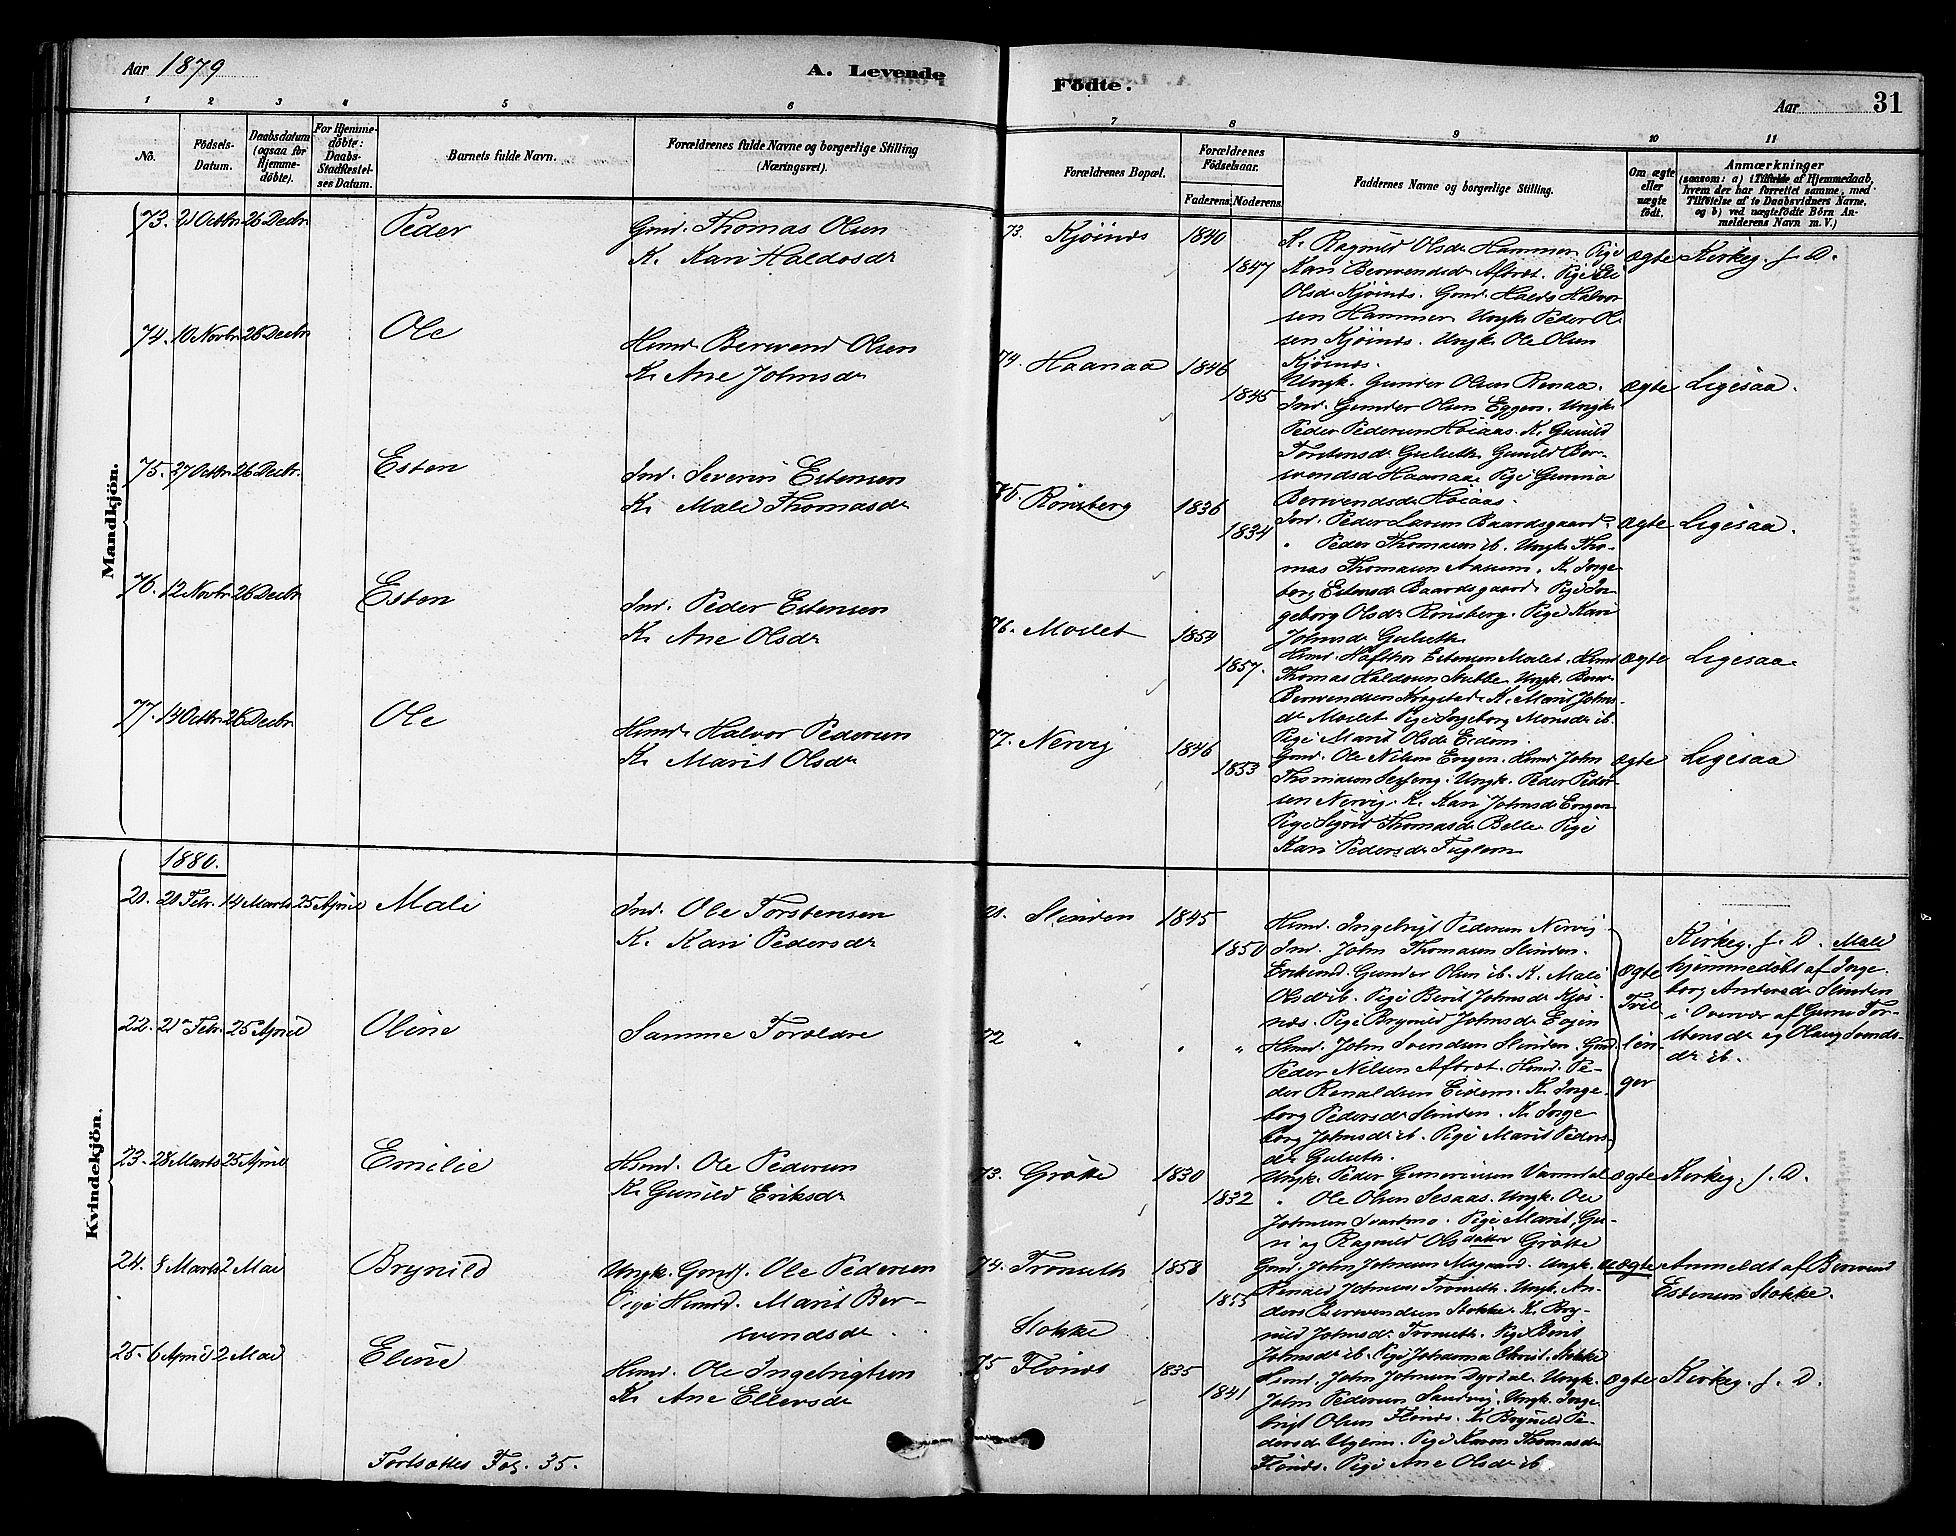 Aar 1879
A. Levende
Födte.
Aar
31
1 2 3 4 5 6 7 8 9 10 11
No.
Födsels-
Datum.
Daabsdatum
(ogsaa for
Hjemme-
döbte).
For Hjemme-
döbte:
Daabs-
Stadfæstel-
ses Datum.
Barnets fulde Navn.
Forældrenes fulde Navne og borgerlige Stilling
(Næringsvei).
Forældrenes Bopæl.
Forældrenes
Födselsaar.
Faderens.
Moderens.
Faddernes Navne og borgerlige Stilling.
Om ægte
eller
uægte
födt.
Anmærkninger
(saasom: a) i Tilfælde af Hjemmedaab,
hvem der har forrettet samme, med
Tilföielse af to Daabsvidners Navne,
og b) ved uægtefödte Börn An-
melderens Navn m. V.)
Mandkjön.
73. 21 Octbr 26 Decbr Peder
Gmd. Thomas Olsen
K. Kari Haldosdr
73. Kjösnæs 1840
1847
K. Ragnild Olsdr Hammer. Pige
Kari Berwendsdr Aftröt. Pige Eli
Olsdr Kjösnæs. Gmd. Haldo Halvor
sen Hammer. Ungk. Peder Ol
sen Kjösnæs. Ungk. Ole Olsen
Kjösnæs.
ægte
Kirkeg. f. D.
74. 10 Novbr 26 Decbr Ole
Hsmd. Berwend Olsen
K. Ane Johnsdr
74. Haanaa 1846
1845
Ungk. Gunder Olsen Renaa.
Ind. Gunder Olsen Eggen. Ungk.
Peder Pedersen Höiaas. K. Gunild
Torstensdr Gulseth. Gunild Ber-
wendsdr Haanaa. Pige Gunnia
Berwendsdr Höiaas.
ægte
Ligesaa.
75. 27 Octbr 26 Decbr. Esten
Ind. Severin Estensen
K. Mali Thomasdr
75. Rönsberg 1836
1834
Ind. Peder Larsen Baardsgaard.
" Peder Thomasen ib. Ungk. Tho-
mas Thomasen Aasen. K. Inge
borg Estensdr Baardsgaard. Pige In
geborg Olsdr Rönsberg. Pige Kari
Johnsdr Gulseth.
ægte
Ligesaa.
76. 12 Novbr 26 Decbr Esten
Ind. Peder Estensen
K. Ane Olsdr
76. Moslet 1854
1857.
Hsmd. Hafthor Estensen Moslet. Hsmd
Thomas Haldosen Stubbe. Ungk. Berw
Berwendsen Krogstad. K. Marit Johns-
dr Moslet. Pige Ingeborg Monsdr ib.
Pige Marit Olsdr Eidem.
ægte
Ligesaa
77. 14 Octbr 26 Decbr Ole
Hsmd. Halvor Pedersen
K. Marit Olsdr
77. Nervig 1846
1853
Gmd. Ole Nilsen Engen. Hsmd. John
Thomasen Sesseng. Ungk. Peder Peder-
sen Nervig. K. Kari Johnsdr Engen
Pige Sigrid Thomasdr Belle. Pige
Kari Pedersdr Fuglem
ægte
Ligesaa
1880.
Kvindekjön.
20. 20 Febr. 14 Marts 25 April Mali
Ind. Ole Torstensen
K. Kari Pedersdr
21. Slinden 1845
1850
Hsmd. Ingebrigt Pedersen Nervig
Ind. John Thomasen Slinden.
Enkemd. Gunder Olsen ib. K. Mali
Olsdr ib. Pige Berit Johnsdr Kjös-
næs. Pige Brynild Johnsdr Engen
ægte
Tvil
lin-
ger
Kirkeg. f. D. Mali
hjemmedöbt af Inge-
borg Andersdr Slinden
i Overvær af Guru Tor-
stensdr og Olaug Svends-
dr ib.
22. 21de Febr. 25 April Oline
Samme Forældre
22 " " "
Hsmd. John Svendsen Slinden. Gmd
Peder Nilsen Aftröt. Hsmd. Pe-
der Renaldsen Eidem. K. Inge-
borg Pedersdr Slinden. K. Inge
borg Johnsdr ib. Pige Marit Peders-
dr Gulseth.
23. 28 Marts 25 April Emilie
Hsmd. Ole Pedersen
K. Gunild Eriksdr
73. Grötte 1830
1832
Ungk. Peder Gunneriusen Varmdal
" Ole Olsen Sesaas. Ungk. Ole
Johnsen Svartmo. Pige Marit, Gu-
ri og Ragnild Olsdøtter Grötte
ægte
Kirkeg. f. D.
24. 8 Marts 2 Mai Brynild
Ungk. Gmdsf. Ole Pedersen
Pige Hsmd. Marit Ber-
wendsdr
74. Tronseth 1858
Stokke
1855
Gmd. John Johnsen Mogaard. Ungk.
Renald Johnsen Tronseth. Ungk. An-
ders Berwendsen Stokke. K. Bry-
nild Johnsdr Tronseth. Pige Berit
Johnsdr ib. Pige Johanna Christ. Stokke
uægte
Anmeldt af Berwend
Estensen Stokke.
25. 6 April 2 Mai Eline
Hsmd. Ole Ingebrigtsen
K. Ane Ellersdr
75 Flönæs 1835
1841
Hsmd. John Johnsen Dyrdal. Ungk.
John Pedersen Sandvig. Ungk. Inge
brigt Olsen Flönæs. K. Brynild Pe-
dersdr Uglem. Pige Karen Thomasdr
Flönæs. Pige Ane Olsdr ib
ægte
Kirkeg. f. D.
Fortsættes Fol. 35.